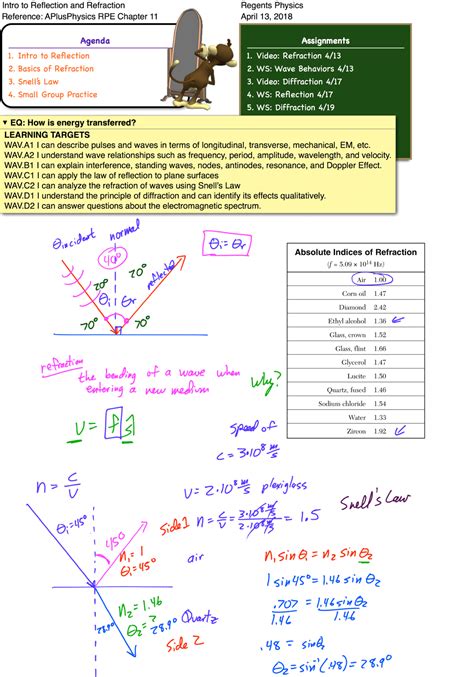 Intro to Reflection and Refraction
Reference: APlusPhysics RPE Chapter 11
Regents Physics
April 13, 2018
Agenda
1. Intro to Reflection
2. Basics of Refraction
3. Snell's Law
4. Small Group Practice
Assignments
1. Video: Refraction 4/13
2. WS: Wave Behaviors 4/13
3. Video: Diffraction 4/17
4. WS: Reflection 4/17
5. WS: Diffraction 4/19
▼ EQ: How is energy transferred?
LEARNING TARGETS
WAV.A1 I can describe pulses and waves in terms of longitudinal, transverse, mechanical, EM, etc.
WAV.A2 I understand wave relationships such as frequency, period, amplitude, wavelength, and velocity.
WAV.B1 I can explain interference, standing waves, nodes, antinodes, resonance, and Doppler Effect.
WAV.C1 I can apply the law of reflection to plane surfaces
WAV.C2 I can analyze the refraction of waves using Snell's Law
WAV.D1 I understand the principle of diffraction and can identify its effects qualitatively.
WAV.D2 I can answer questions about the electromagnetic spectrum.
θincident normal
40°
θi = θr
20° 20°
reflected
θi θr
70° 70°
Absolute Indices of Refraction
(f = 5.09 × 10¹⁴ Hz)
Air 1.00
Corn oil 1.47
Diamond 2.42
Ethyl alcohol 1.36
Glass, crown 1.52
Glass, flint 1.66
Glycerol 1.47
Lucite 1.50
Quartz, fused 1.46
Sodium chloride 1.54
Water 1.33
Zircon 1.92
refraction
the bending of a wave when
entering a new medium
why?
v = fλ
speed of
c = 3·10⁸ m/s
n = c/v
v = 2·10⁸ m/s plexiglass
Snell's Law
θi = 45°
45°
side 1
n = c/v = 3·10⁸ m/s / 2·10⁸ m/s = 1.5
n₁ = 1
θ₁ = 45°
air
n₁ sin θ₁ = n₂ sin θ₂
1 sin 45° = 1.46 sin θ₂
n₂ = 1.46
θ₂ = ?
28.9° Quartz
28.9°
side 2
.707/1.46 = 1.46 sin θ₂/1.46
.48 = sin θ₂
θ₂ = sin⁻¹(.48) = 28.9°